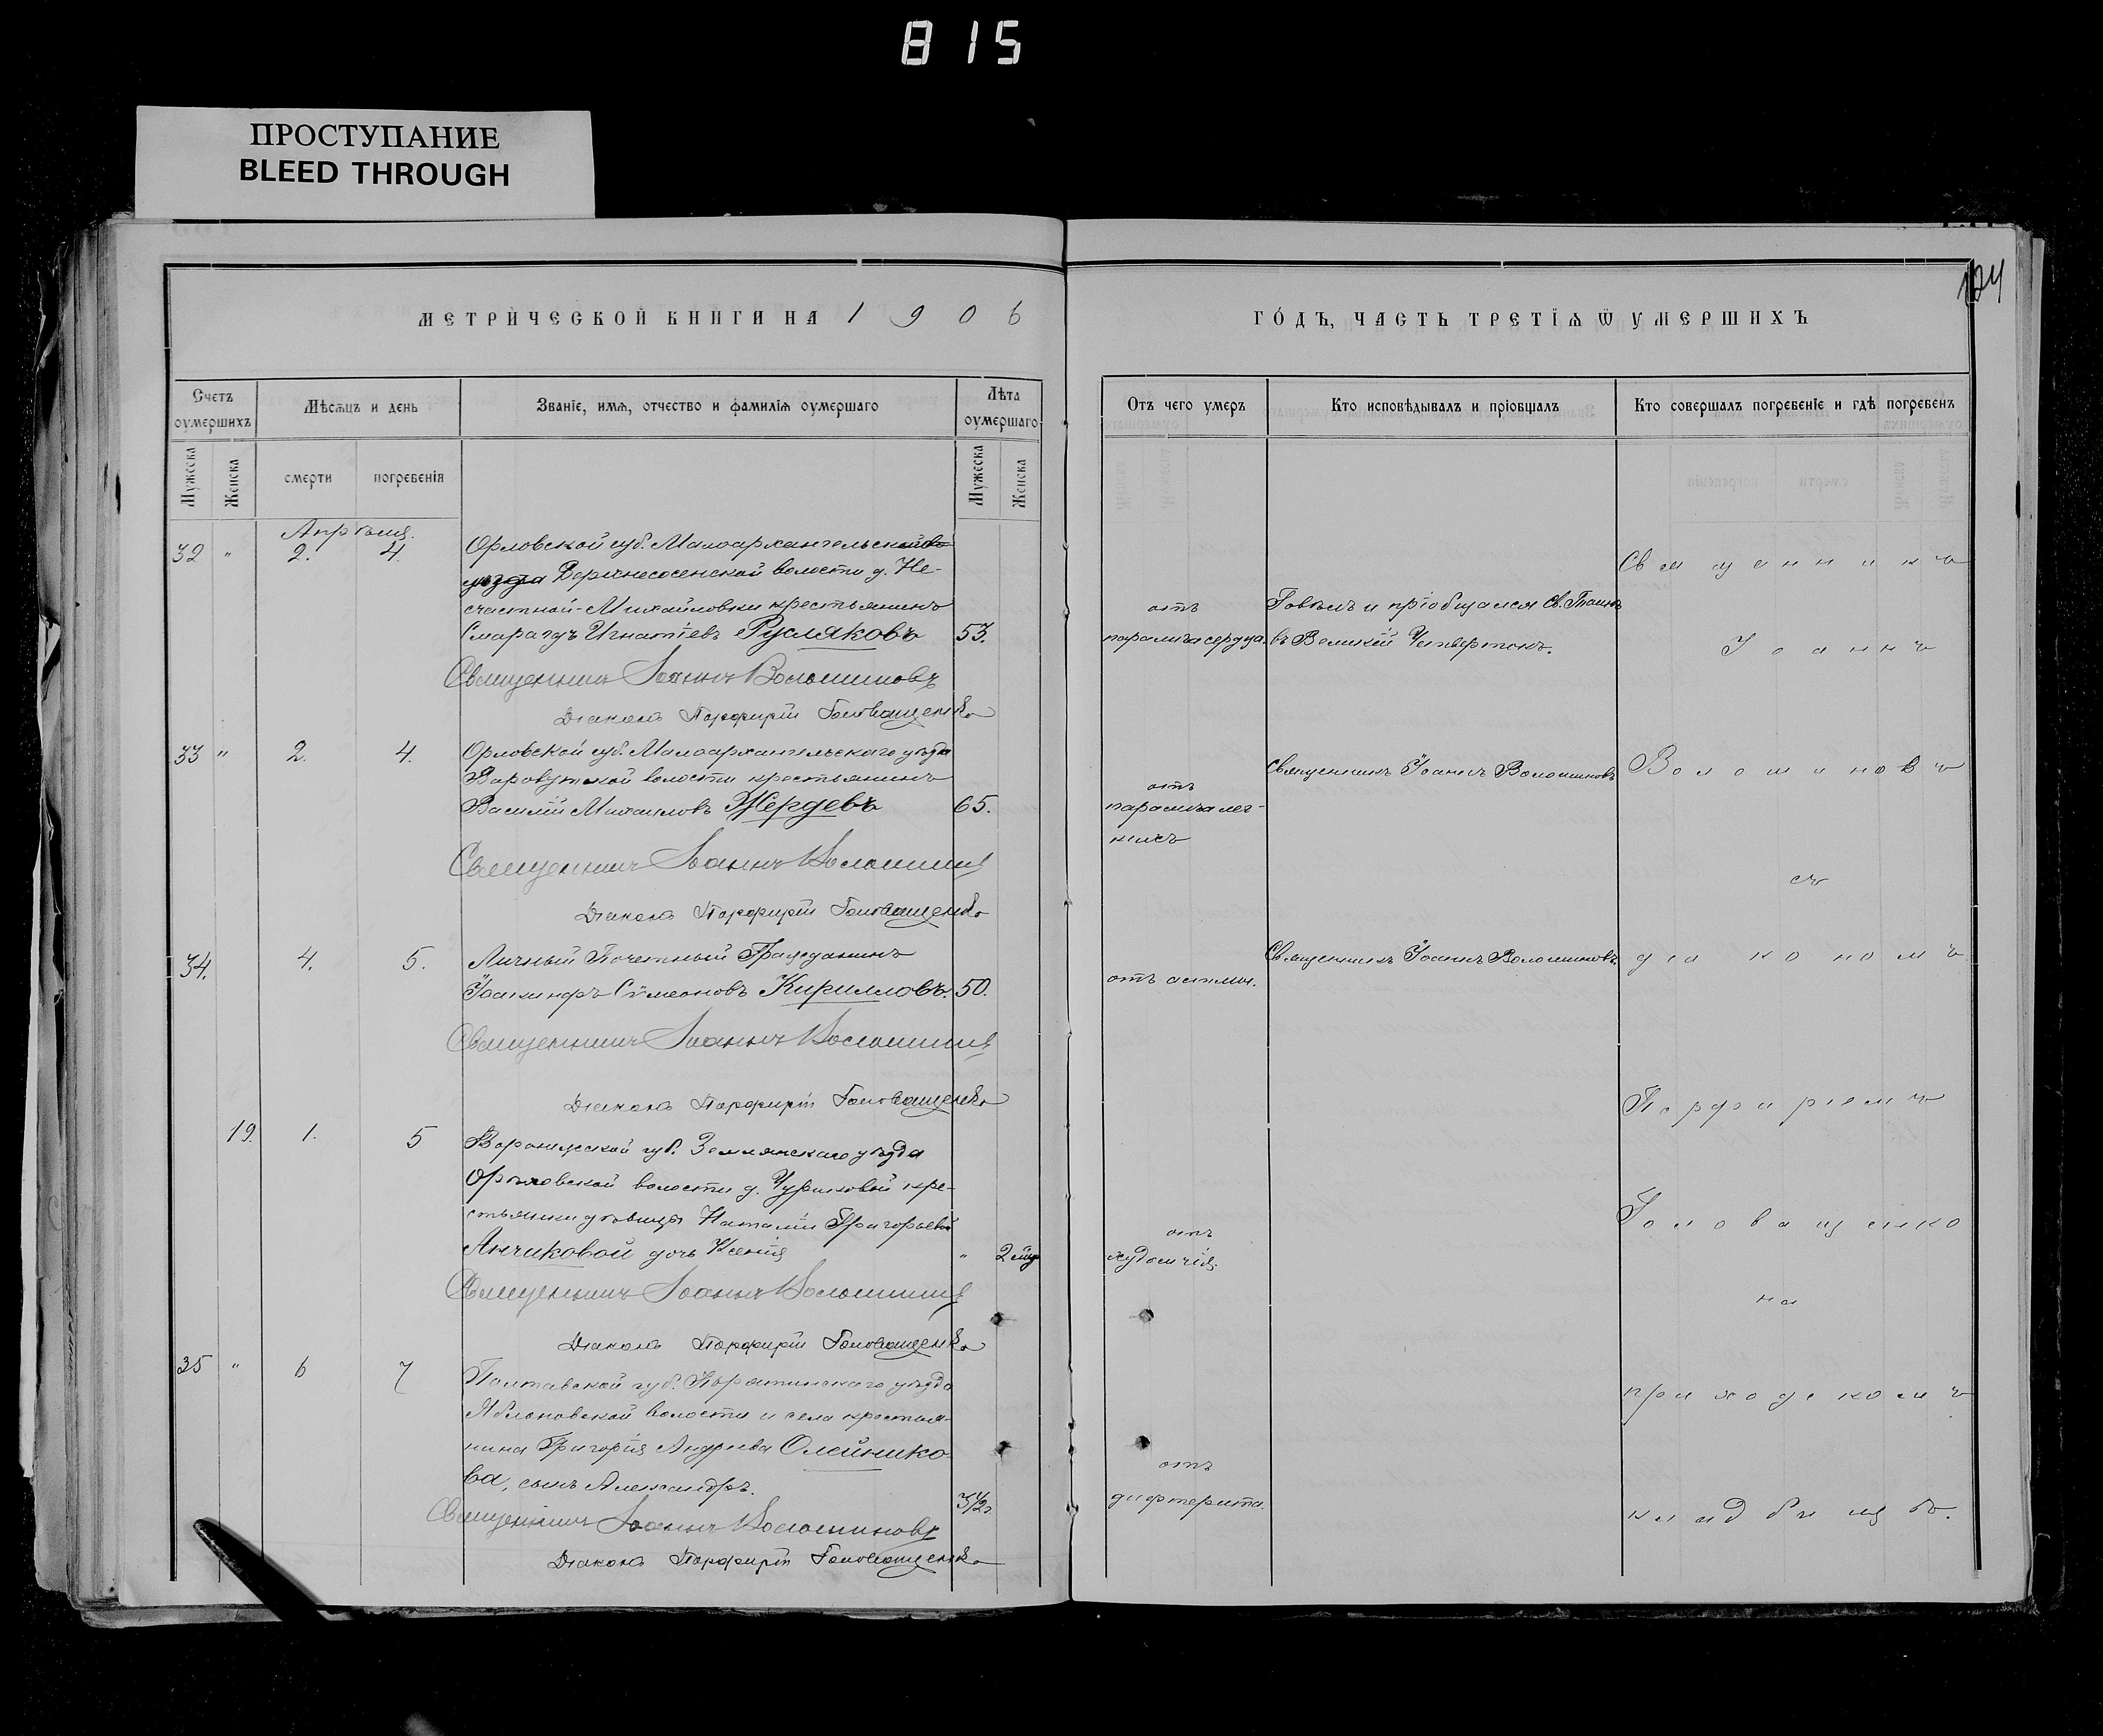 815
ПРОСТУПАНИЕ
BLEED THROUGH
124
МЕТРИЧЕСКОЙ КНИГИ НА 1906
ГОДЪ, ЧАСТЬ ТРЕТІѦ Ѿ УМЕРШИХЪ
Счетъ оумершихъ
Мѣсѧцъ и день
Званіе, имѧ, отчество и фамиліѧ оумершаго
Лѣта оумершаго
Отъ чего умеръ
Кто исповѣдывалъ и пріобщалъ
Кто совершалъ погребеніе и гдѣ погребенъ
Мужеска
Женска
смерти
погребенія
Мужеска
Женска
Апрѣля.
32 " 2. 4.
Орловской губ. Малоархангельскаго
уѣзда Верхнесосенской волости д. Не-
счастной-Михайловки крестьянинъ
Смарагдъ Игнатіевъ Русляковъ 53.
отъ
паралича сердца.
Говѣлъ и пріобщался Св. Таинъ
въ Великій Четвертокъ.
Священникъ Іоаннъ Волошиновъ
Діаконъ Порфирій Головащенко
33 " 2. 4.
Орловской губ. Малоархангельскаго уѣзда
волости крестьянинъ
Василій Михаиловъ Жердевъ 65.
отъ
паралича лег-
кихъ
Священникъ Іоаннъ Волошиновъ
Священникъ Іоаннъ Волошиновъ
Діаконъ Порфирій Головащенко
34. 4. 5.
Личный Почетный Гражданинъ
Іоакинфъ Сѵмеоновъ Кирилловъ. 50.
отъ астмы.
Священникъ Іоаннъ Волошиновъ.
Священникъ Іоаннъ Волошиновъ
Діаконъ Порфирій Головащенко
19. 1. 5
Воронежской губ. Землянскаго уѣзда
волости д. Чуриковой кре-
стьянки дѣвицы Наталіи Григорьевой
Анчиковой дочь Ксенія " 2
отъ
худосочія.
Священникъ Іоаннъ Волошиновъ
Діаконъ Порфирій Головащенко
35 " 6 7
Полтавской губ. Пирятинскаго уѣзда
Яблоновской волости и села крестья-
нина Григорія Андреева Олейнико-
ва, сынъ Александръ. 3½г.
отъ
дифтерита.
Священникъ Іоаннъ Волошиновъ
Діаконъ Порфирій Головащенко
Священникъ
Іоаннъ
Волошиновъ
съ
діакономъ
Порфиріемъ
Головащенко
на
приходскомъ
кладбищѣ.